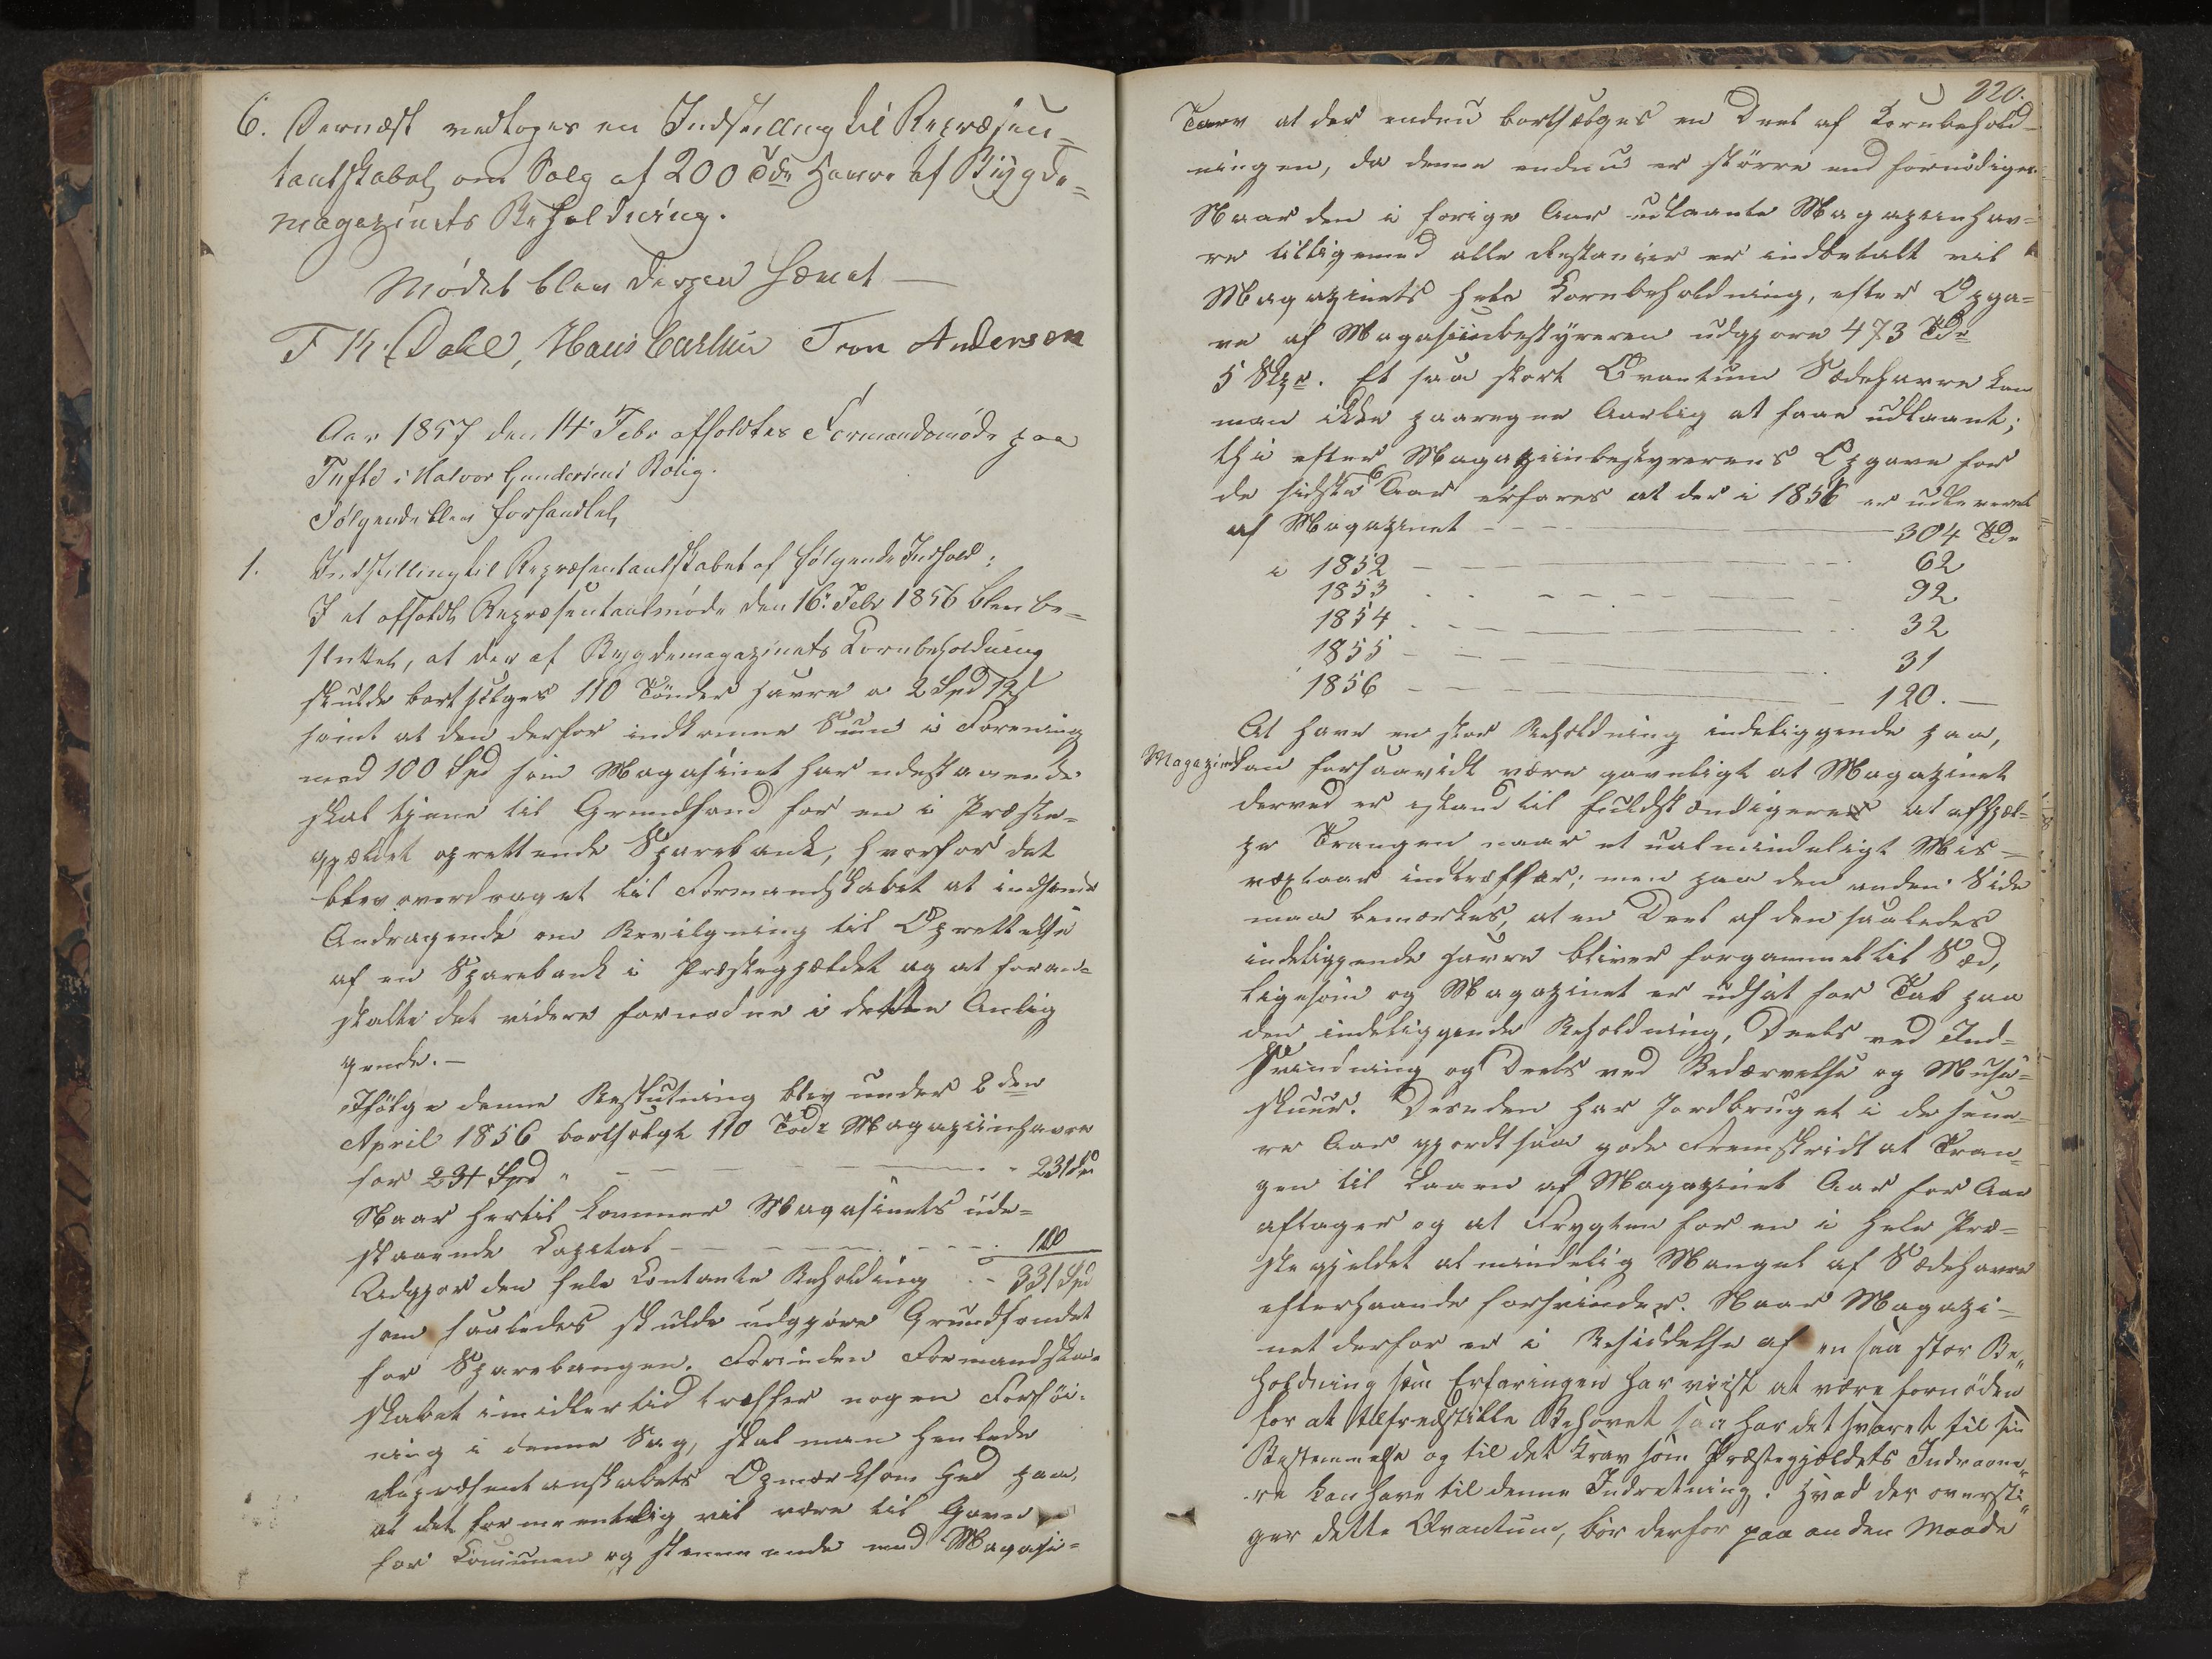 6. Dernæst vedtoges en Indstilling til Repræsen-
tantskabet om Salg af 200 Tdr Havre af Bygde-
magazinets Beholdning.
Mødet blev derpaa hævet
T K. Dahl, Hans Tron Andersen
Aar 1857 den 14 Febr afholdtes Formandsmøde paa
Tufte i Halvor Gundersens Bolig.
Følgende blev forhandlet
1. Indstilling til Repræsentantskabet af følgende Indhold:
I et afholdt Repræsentantmøde den 16. Febr 1856 blev be-
sluttet, at der af Bygdemagazinets Kornbeholdning
skulde bortsælges 110 Tønder Havre a 2 Spd 12 s
samt at den derfor indkomne Sum i Forening
med 100 Spd som Magasinet har udestaaende
skal tjene til Grundfond for en i Præste-
gjældet oprettende Sparebank, hvorfor det
blev overdraget til Formandskabet at indsende
Andragende om Bevilgning til Oprettelse
af en Sparebank i Præstegjældet og at foran-
stalte det videre fornødne i dette Anlig
gende.-
Ifølge denne Beslutning blev under 2den
April 1856 bortsolgt 110 Tdr Magaziinhavre
for 231 Spd " - - - 231 Spd
Naar hertil kommer Magasinets ude-
staaende Capital - - - 100
Udgjør den hele Contante Beholding - 331 Spd
som saaledes skulde udgjøre Grundfondet
for Sparebangen. Forinden Formandska-
skabet imidlertid træffer nogen Forføi-
ning i denne Sag, skal man henlede
Repræsentanskabets Opmærksomhed paa,
at det formeentlig vil være til Gavn
for Communen og stemmende med Magasi-
220.
Tarv at der endnu bortsælges en Deel af Kornbehold-
ningen, da denne endnu er større end fornødiges.
Naar den i forige Aar udlaante Magaziinhav-
re tilligemed alle Restancer er indbetalt vil
Magazinets hele Kornbeholdning, efter Opga-
ve af Magasiinbestyreren udgjøre 473 Tdr
5 Skpr. Et saa stort Qvantum Sædehavre kan
man ikke paaregne Aarlig at faae udlaant;
thi efter Magaziinbestyrerens Opgave for
de sidste 6 Aar erfares at der i 1856 er udleveret
af Magazinet - - - 304 Tdr
i 1852 - - - 62
1853 - - - 92
1854 - - - 32
1855 - - - 31
1856 - - - 120.-
At have en stor Beholdning indeliggende paa,
Magazinet kan forsaavidt være gavnligt at Magazinet
derved er istand til fuldstændigere at afhjæl-
pe Trangen naar et ualmindeligt Mis-
væxtaar indtræffer; men paa den anden Side
maa bemærkes, at en Deel af den saaledes
indeliggende Havre bliver forgammel til Sæd,
ligesom og Magazinet er udsat for Tab paa
den indeliggende Beholdning, Deels ved Ind-
svindning og Deels ved Bedærvelse og Muse-
skuur. Desuden har Jordbruget i de sene-
re Aar gjordt saa gode Fremskridt at Tran-
gen til Laan af Magazinet Aar for Aar
aftager og at Frygten for en i hele Præ-
stegjeldet almindelig Mangel af Sædehavre
efterhaande forsvinder. Naar Magazi-
net derfor er i Besiddelse af en saa stor Be"
holdning som Erfaringen har viist at være fornøden
for at tilfredsstille Behovet saa har det svaret til sin
Bestemmelse og til det Krav som Præstegjældets Indvaane"
re kan have til denne Indretning. Hvad der oversti"
ger dette Qvantum, bør derfor paa anden Maade